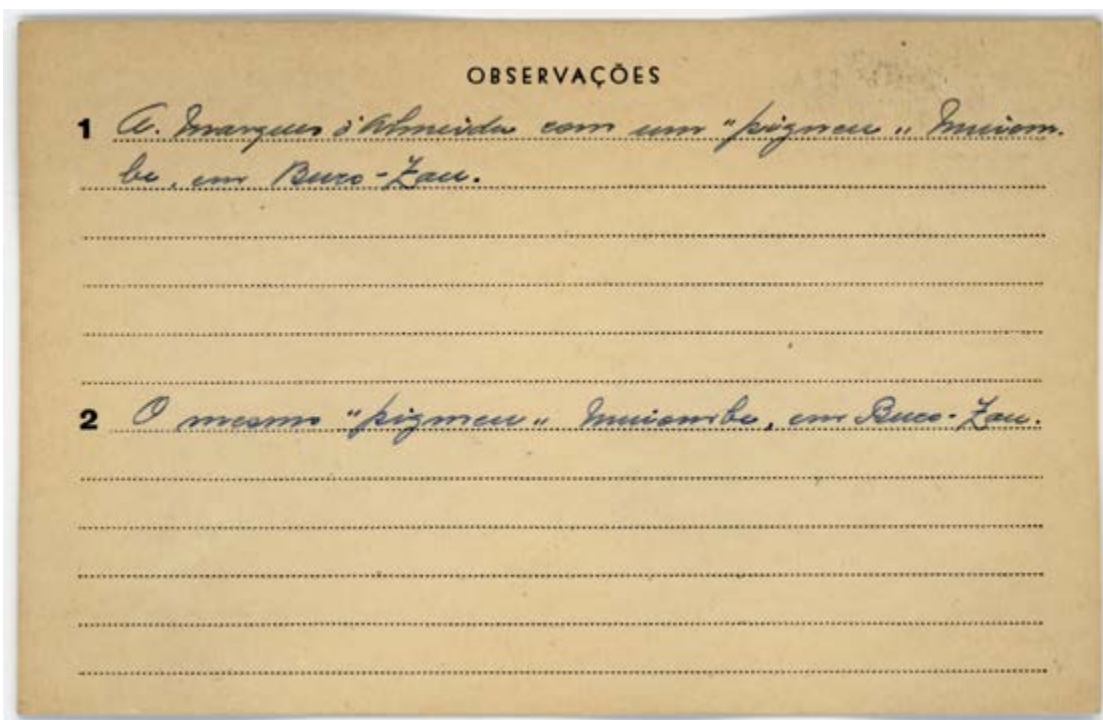 OBSERVAÇÕES
1 A. Marques d'Almeida com um "pigmeu" Muiom-
be, em Buco-Zau.
2 O mesmo "pigmeu" Muiombe, em Buco-Zau.